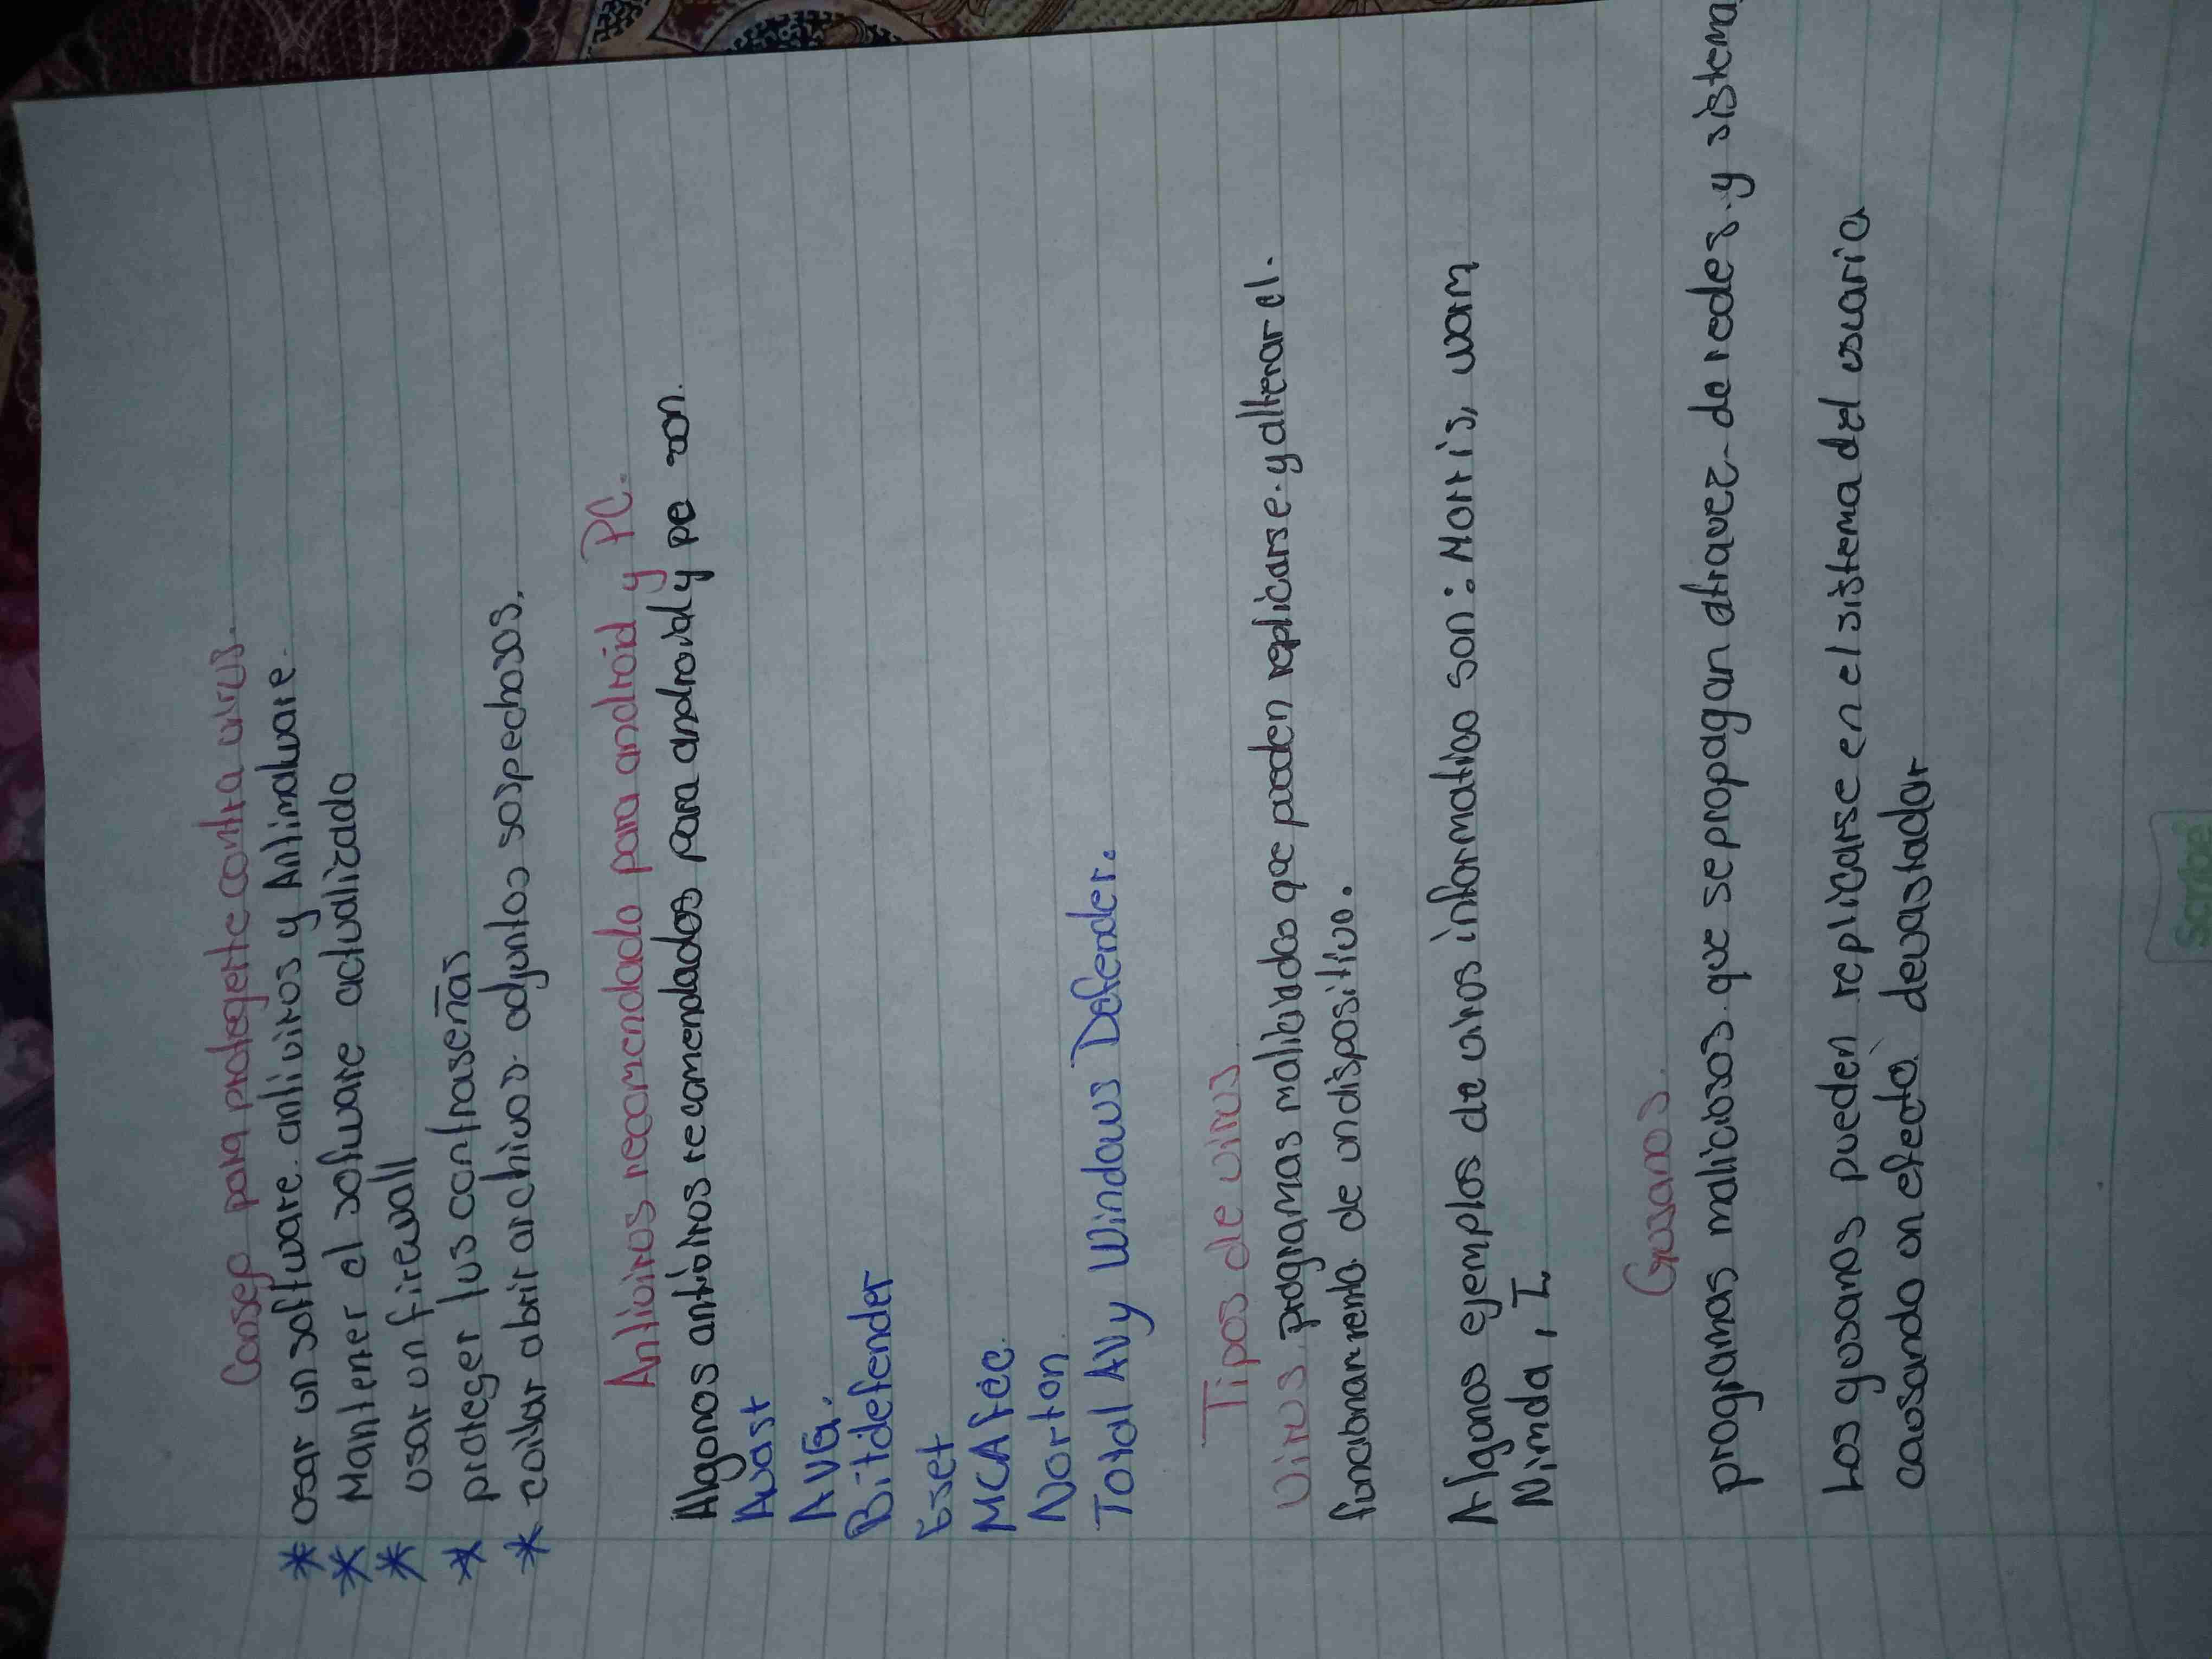 Consep para protegerte contra virus.
* usar un software antivirus y Antimalware.
* Mantener el sofware actualizado
* usar un firewall
* proteger tus contraseñas
* evitar abrir archivos adjuntos sospechosos.
Antivirus recomendado para android y PC.
Algunos antivirus recomendados para android y pc son.
Avast
AVG.
Bitdefender
Eset
MCAfee
Norton
Total AVy Windows Defender.
Tipos de virus
Virus. programas maliciados que pueden replicarse y alterar el.
funcionamiento de un dispositivo.
Algunos ejemplos de virus informatico son: Morris, worm
Nimda, I
Gusanos
programas maliciosos que se propagan atravez de redes y sistema
Los gusanos pueden replicarse en el sistema del usuario
causando un efecto devastador
Scribe